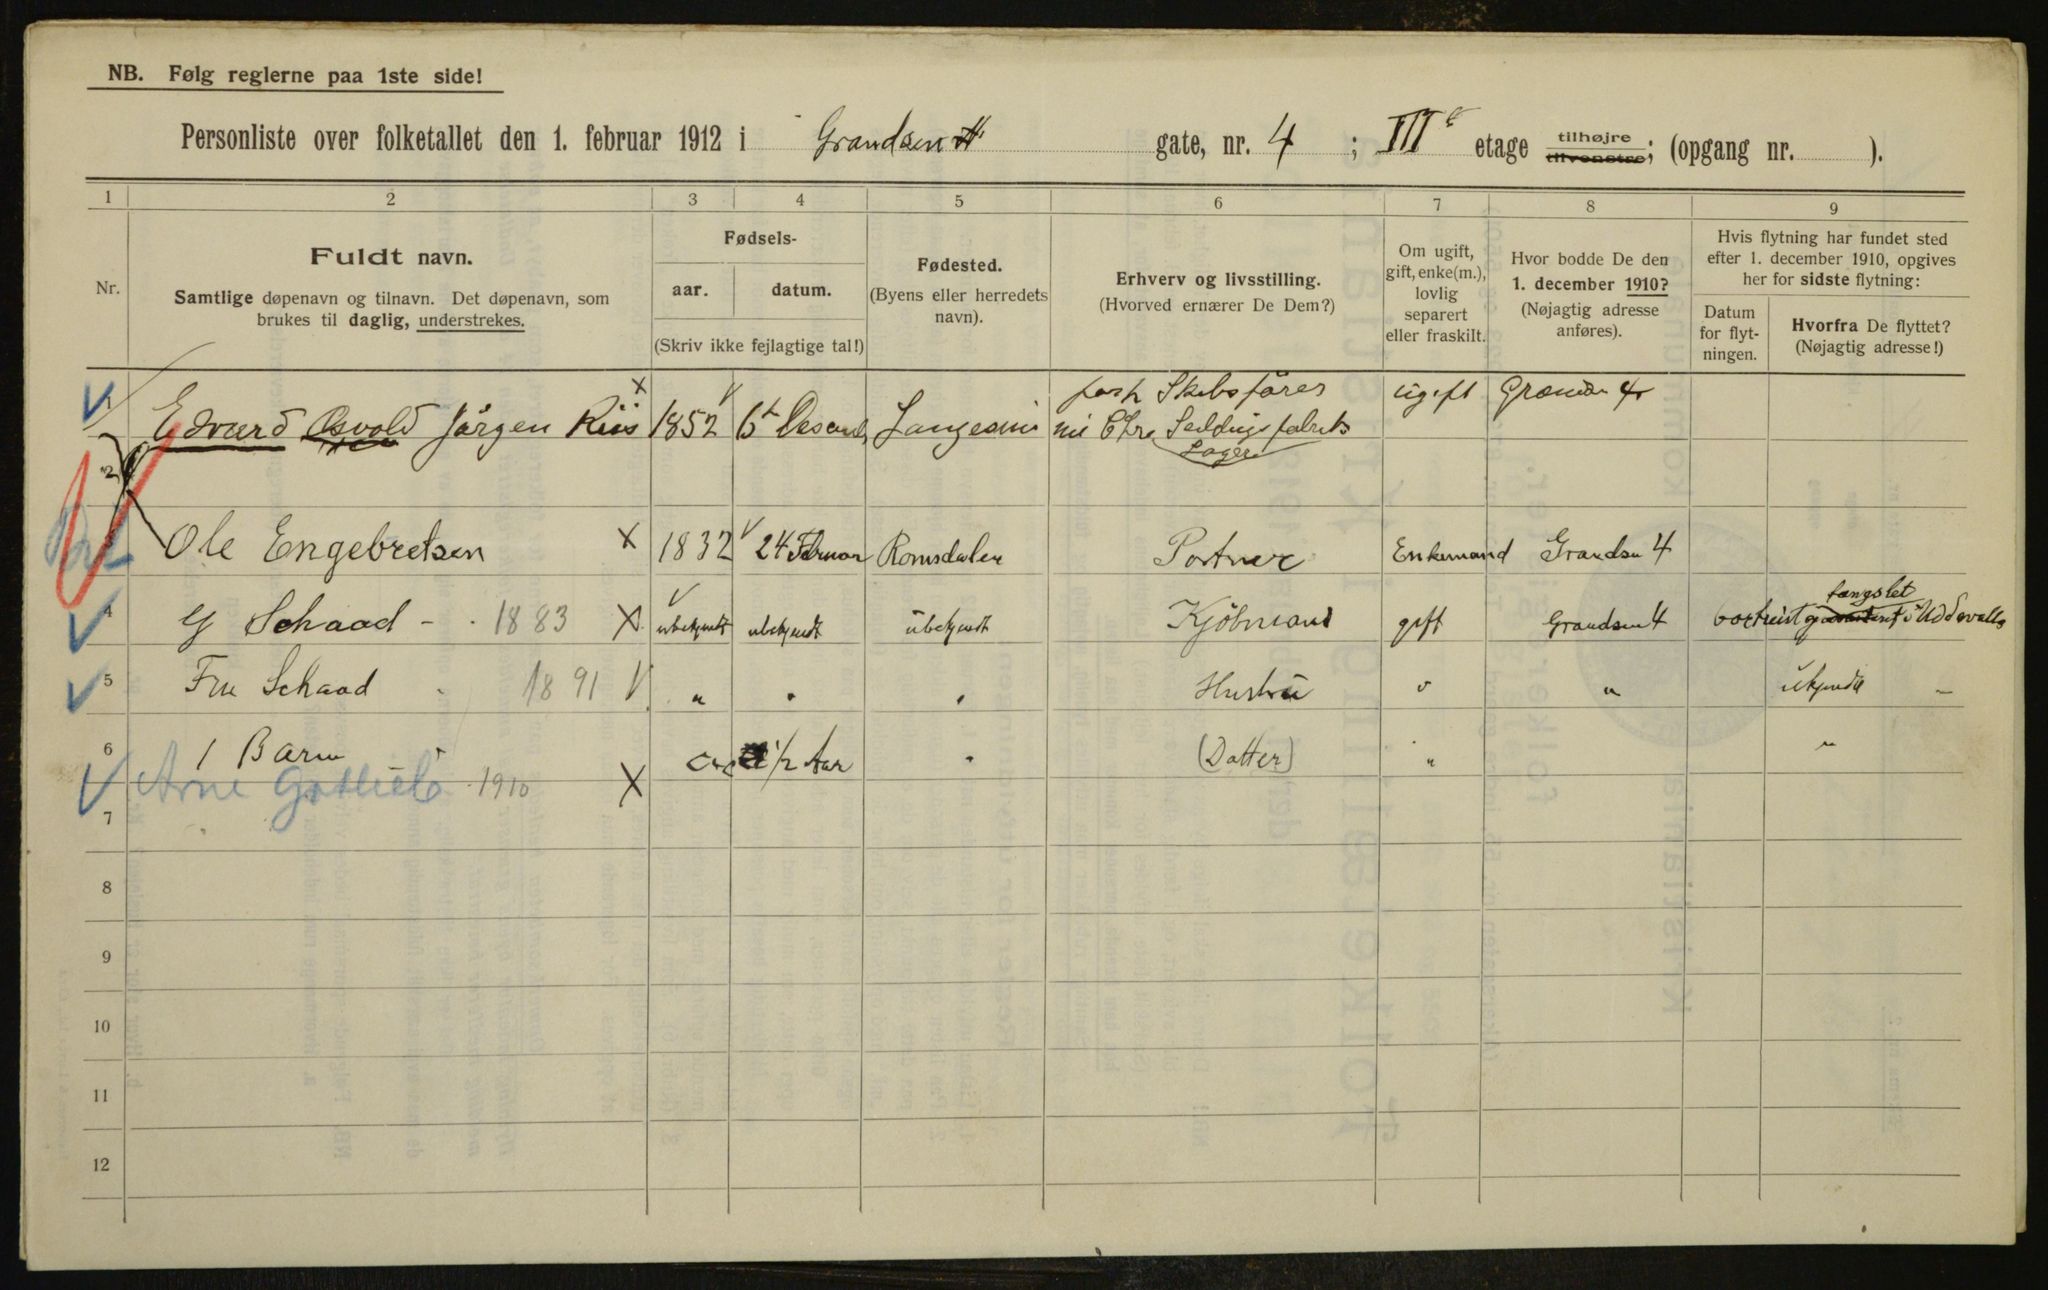 NB. Følg reglerne paa 1ste side!
Personliste over folketallet den 1. februar 1912 i Grændsen gate, nr. 4 ; III etage tilhøjre tilvenstre; (opgang nr. ).
1 2 3 4 5 6 7 8 9
Nr.
Fuldt navn.
Samtlige døpenavn og tilnavn. Det døpenavn, som
brukes til daglig, understrekes.
Fødsels-
aar. datum.
(Skriv ikke fejlagtige tal!)
Fødested.
(Byens eller herredets
navn).
Erhverv og livsstilling.
(Hvorved ernærer De Dem?)
Om ugift,
gift, enke(m.),
lovlig
separert
eller fraskilt.
Hvor bodde De den
1. december 1910?
(Nøjagtig adresse
anføres).
Hvis flytning har fundet sted
efter 1. december 1910, opgives
her for sidste flytning:
Datum
for flyt-
ningen.
Hvorfra De flyttet?
(Nøjagtig adresse!)
1 Edvard Osvold Jörgen Riis x 1852 Skibsförer ugift Grændsen 4
Lager
2
3 Ole Engebretsen x 1832 24 Februar Romsdalen Portner Enkemand Grændsen 4
4 G Schaad - 1883 x ubekjendt ubekjendt ubekjendt Kjöbmand gift Grandsen 4 bortreist Uddevalla
5 Fru Schaad 1891 " " " Hustru " " ukjendt
6 1 Barn 1/2 Aar " (Datter) " "
Arne Gottlieb 1910 x
7
8
9
10
11
12